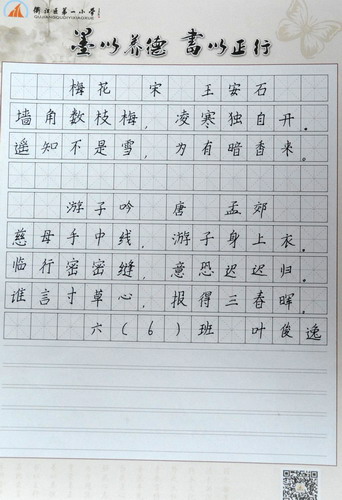 衢江区第一小学
QUJIANGQUDIYIXIAOXUE
墨以养德 書以正行
梅花 宋 王安石
墙角数枝梅，凌寒独自开。
遥知不是雪，为有暗香来。
游子吟 唐 孟郊
慈母手中线，游子身上衣。
临行密密缝，意恐迟迟归。
谁言寸草心，报得三春晖。
六（6）班 叶俊逸